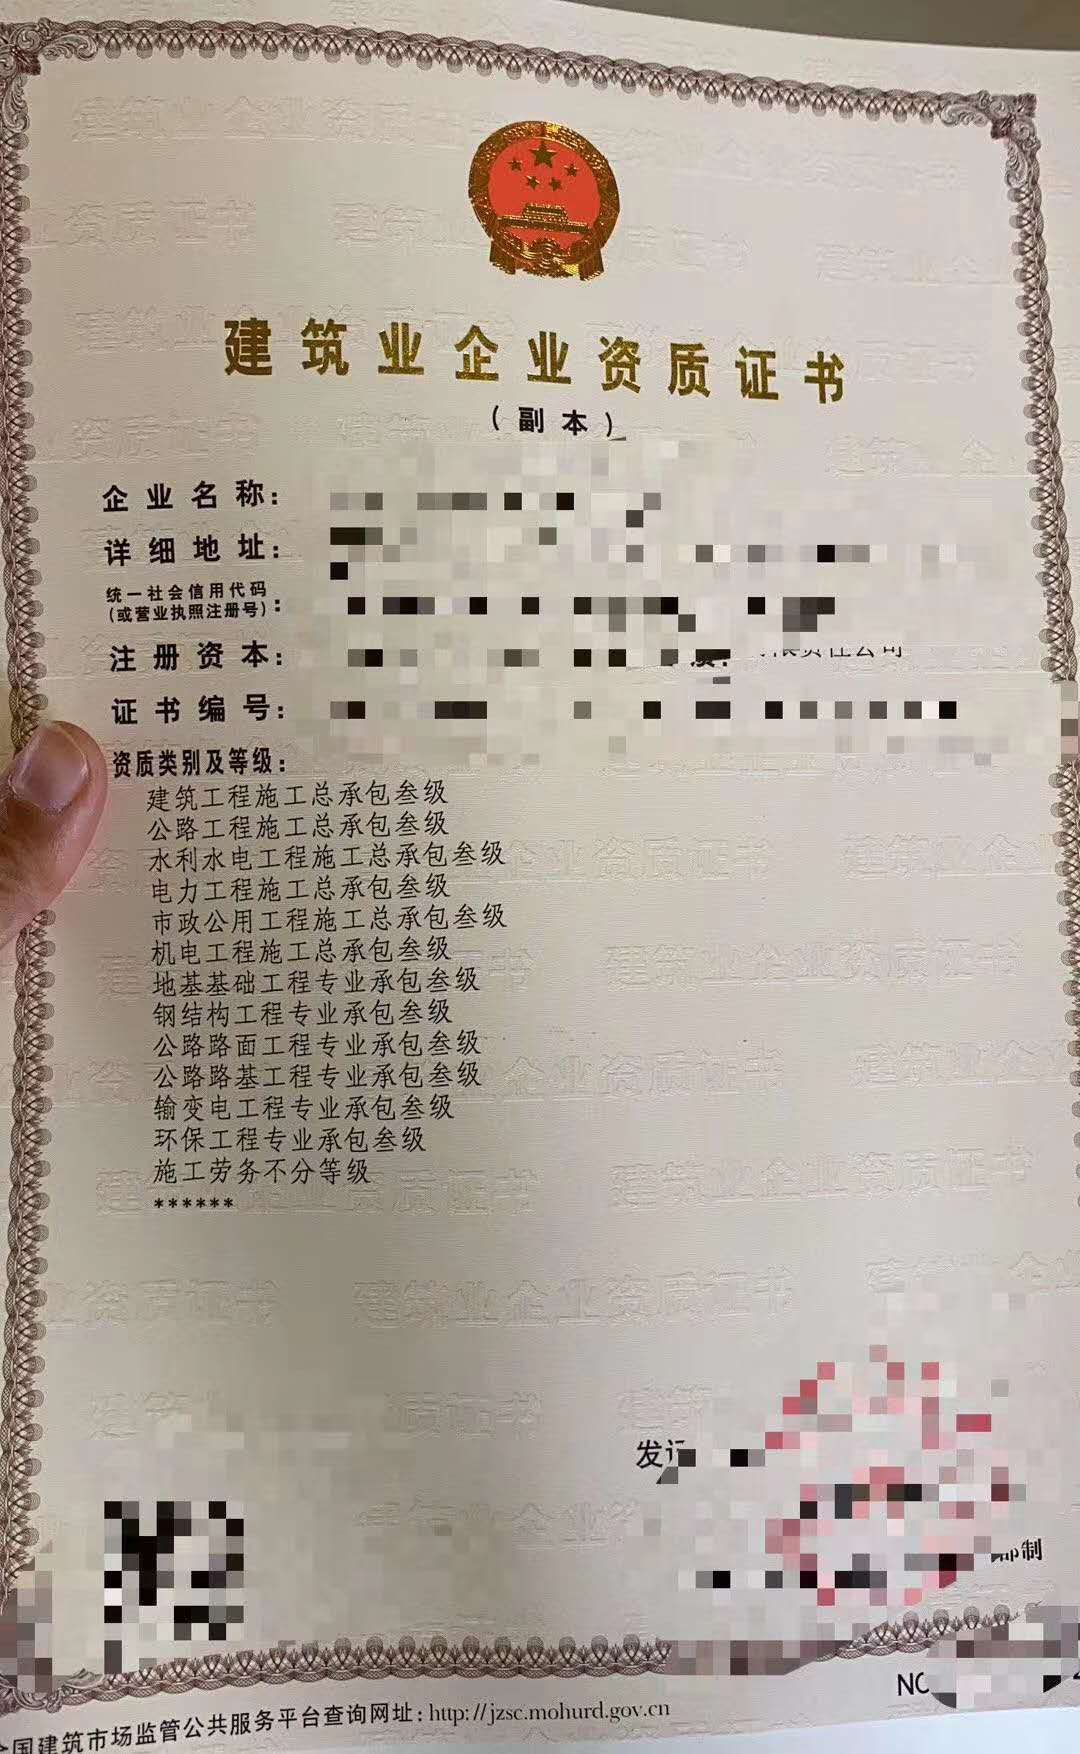 建筑业企业资质证书
（副本）
企业名称：
详细地址：
统一社会信用代码
（或营业执照注册号）：
注册资本：
有限责任公司
证书编号：
资质类别及等级：
建筑工程施工总承包叁级
公路工程施工总承包叁级
水利水电工程施工总承包叁级
电力工程施工总承包叁级
市政公用工程施工总承包叁级
机电工程施工总承包叁级
地基基础工程专业承包叁级
钢结构工程专业承包叁级
公路路面工程专业承包叁级
公路路基工程专业承包叁级
输变电工程专业承包叁级
环保工程专业承包叁级
施工劳务不分等级
******
发证
部制
NO
全国建筑市场监管公共服务平台查询网址：http://jzsc.mohurd.gov.cn